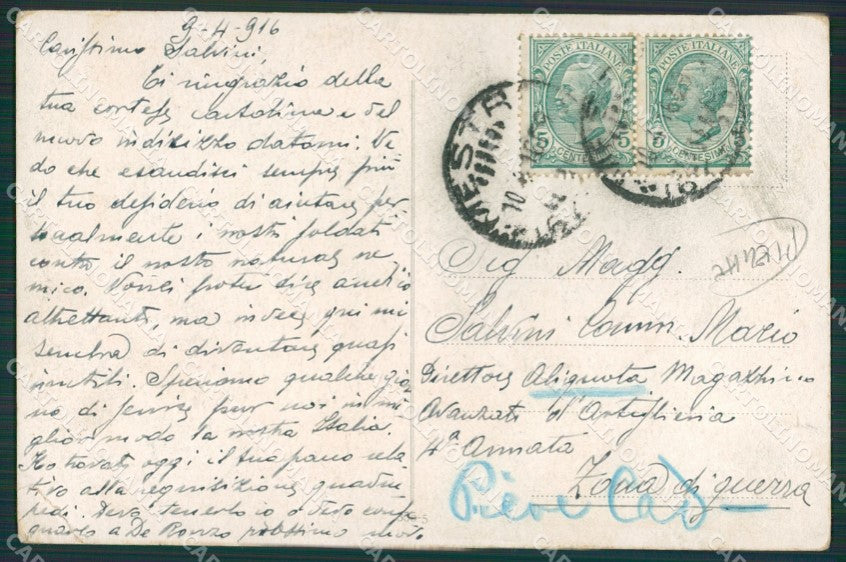 9-4-916
Carissimo Salvini,
Ti ringrazio della
tua cortese cartolina e del
nuovo indirizzo datomi. Ve
do che esaudisci sempre più
il tuo desiderio di aiutare per
sonalmente i nostri soldati
contro il nostro naturale ne
mico. Vorrei poter dire anch'io
altrettanto, ma invece qui mi
sembra di diventare quasi
inutili. Speriamo qualche gior
no di servire pur noi in mi
glior modo la nostra Italia.
Ho trovato oggi il tuo
tivo alla requisizione quadru
pedi. Devi tenerlo io o devo conse
gnarlo a De Ronzo prossimo
POSTE ITALIANE
5 5
CENTESIMI
POSTE ITALIANE
5 5
CENTESIMI
MESTRE
10
PIEGHE
Sig. Magg.
Salvini Comm. Mario
Direttore Aliquota Magazzino
Avanzato d'Artiglieria
4ª Armata
Zona di guerra
Pieve Cad
CARTOLINOMANIA